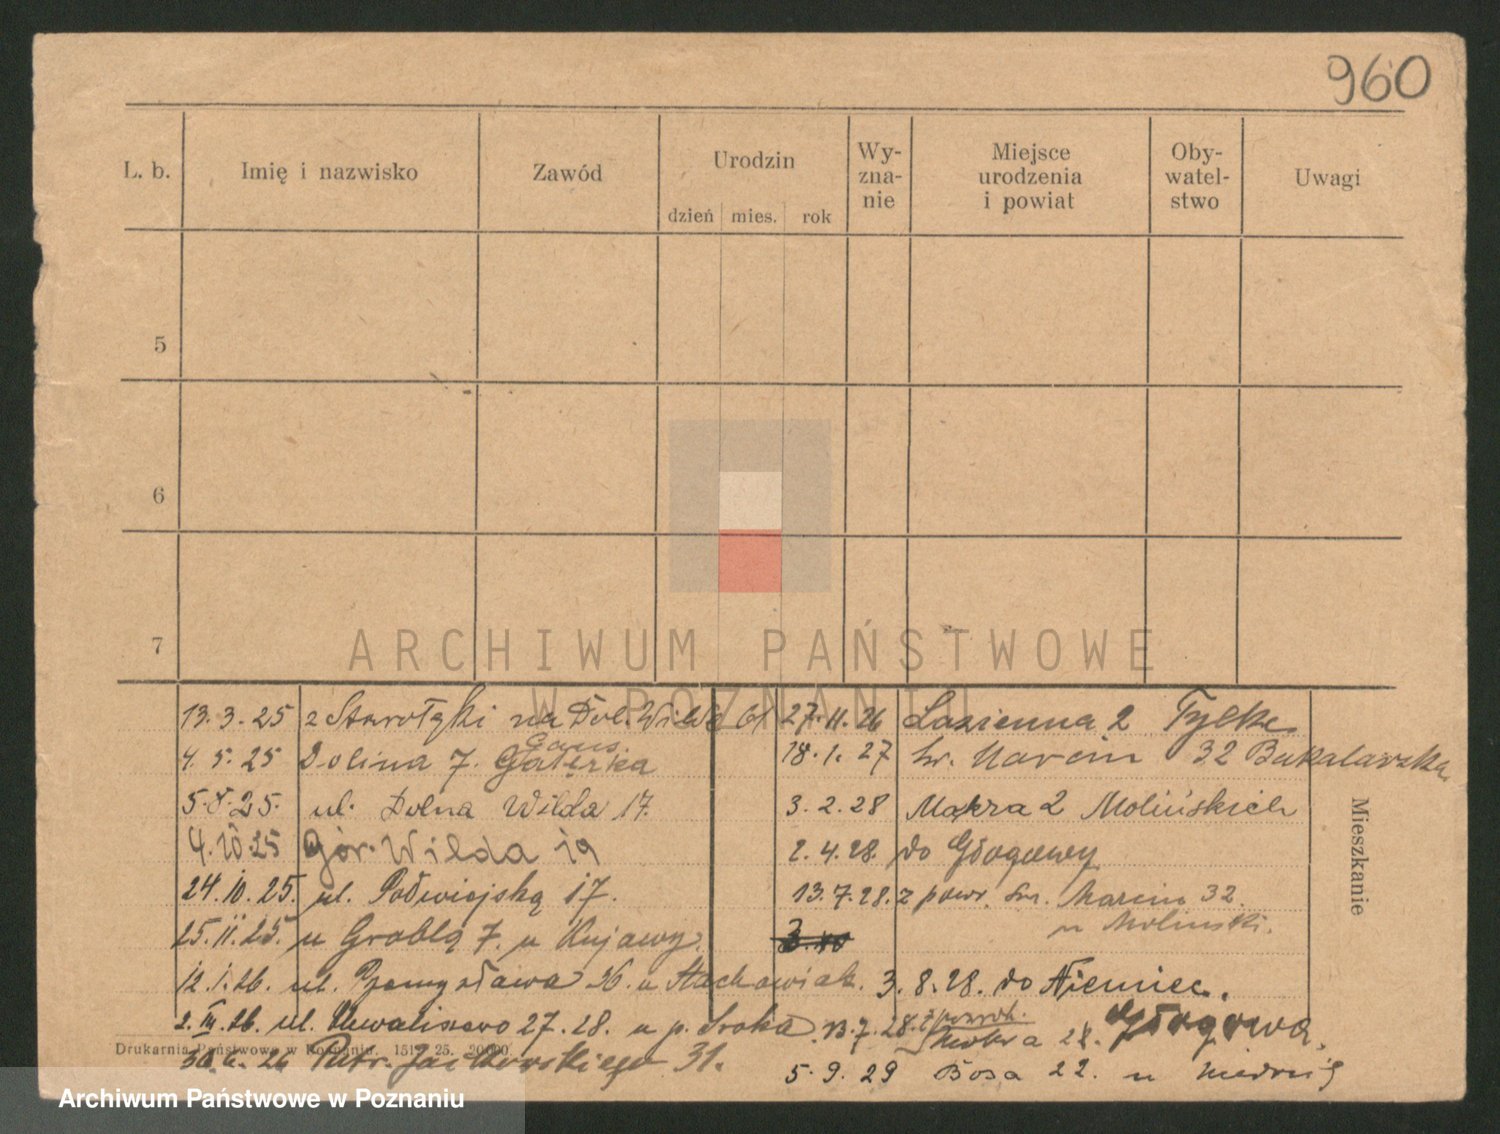 960
L. b.
Imię i nazwisko
Zawód
Urodzin
dzień mies. rok
Wy-
zna-
nie
Miejsce
urodzenia
i powiat
Oby-
watel-
stwo
Uwagi
5
6
7
ARCHIWUM PAŃSTWOWE
W POZNANIU
13.3.25 z Starołęki na Dol. Wilda 61
4.5.25 Dolina 7.
5.8.25. ul. Dolna Wilda 17.
4.10.25 Gór. Wilda 19
24.10.25. ul. Półwiejską 17.
25.11.25. u Groblą 7. u Kujawy.
12.1.26. ul. Przemysława 36. u Stachowiak.
2.III.26. ul. Chwaliszewo 27.28. u p. Sroka.
30.6.26 Patr. Jackowskiego 31.
27.11.26 Łazienna 2
18.1.27 św. Marcin 32
3.2.28 Mokra 2 Molińskich
2.4.28. do Głogowy
13.7.28. z powr. św. Marcin 32.
u Molinski.
3.8.28. do Niemiec.
13.7.28. z powrot. Głogowa.
Mokra
5.9.29 Bosa 22. u
Mieszkanie
Drukarnia Państwowa w Poznaniu. 151 25. 20000
Archiwum Państwowe w Poznaniu